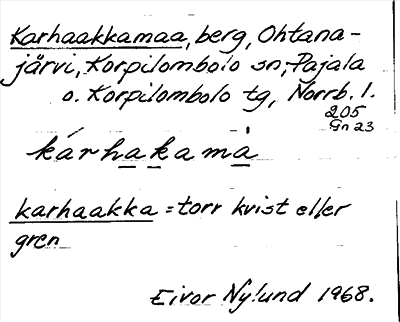 Karhaakkamaa, berg, Ohtana-
järvi, Korpilombolo sn, Pajala
o. Korpilombolo tg, Norrb. l.
205
Gn 23
kárhakamà
karhaakka = torr kvist eller
gren
Eivor Nylund 1968.